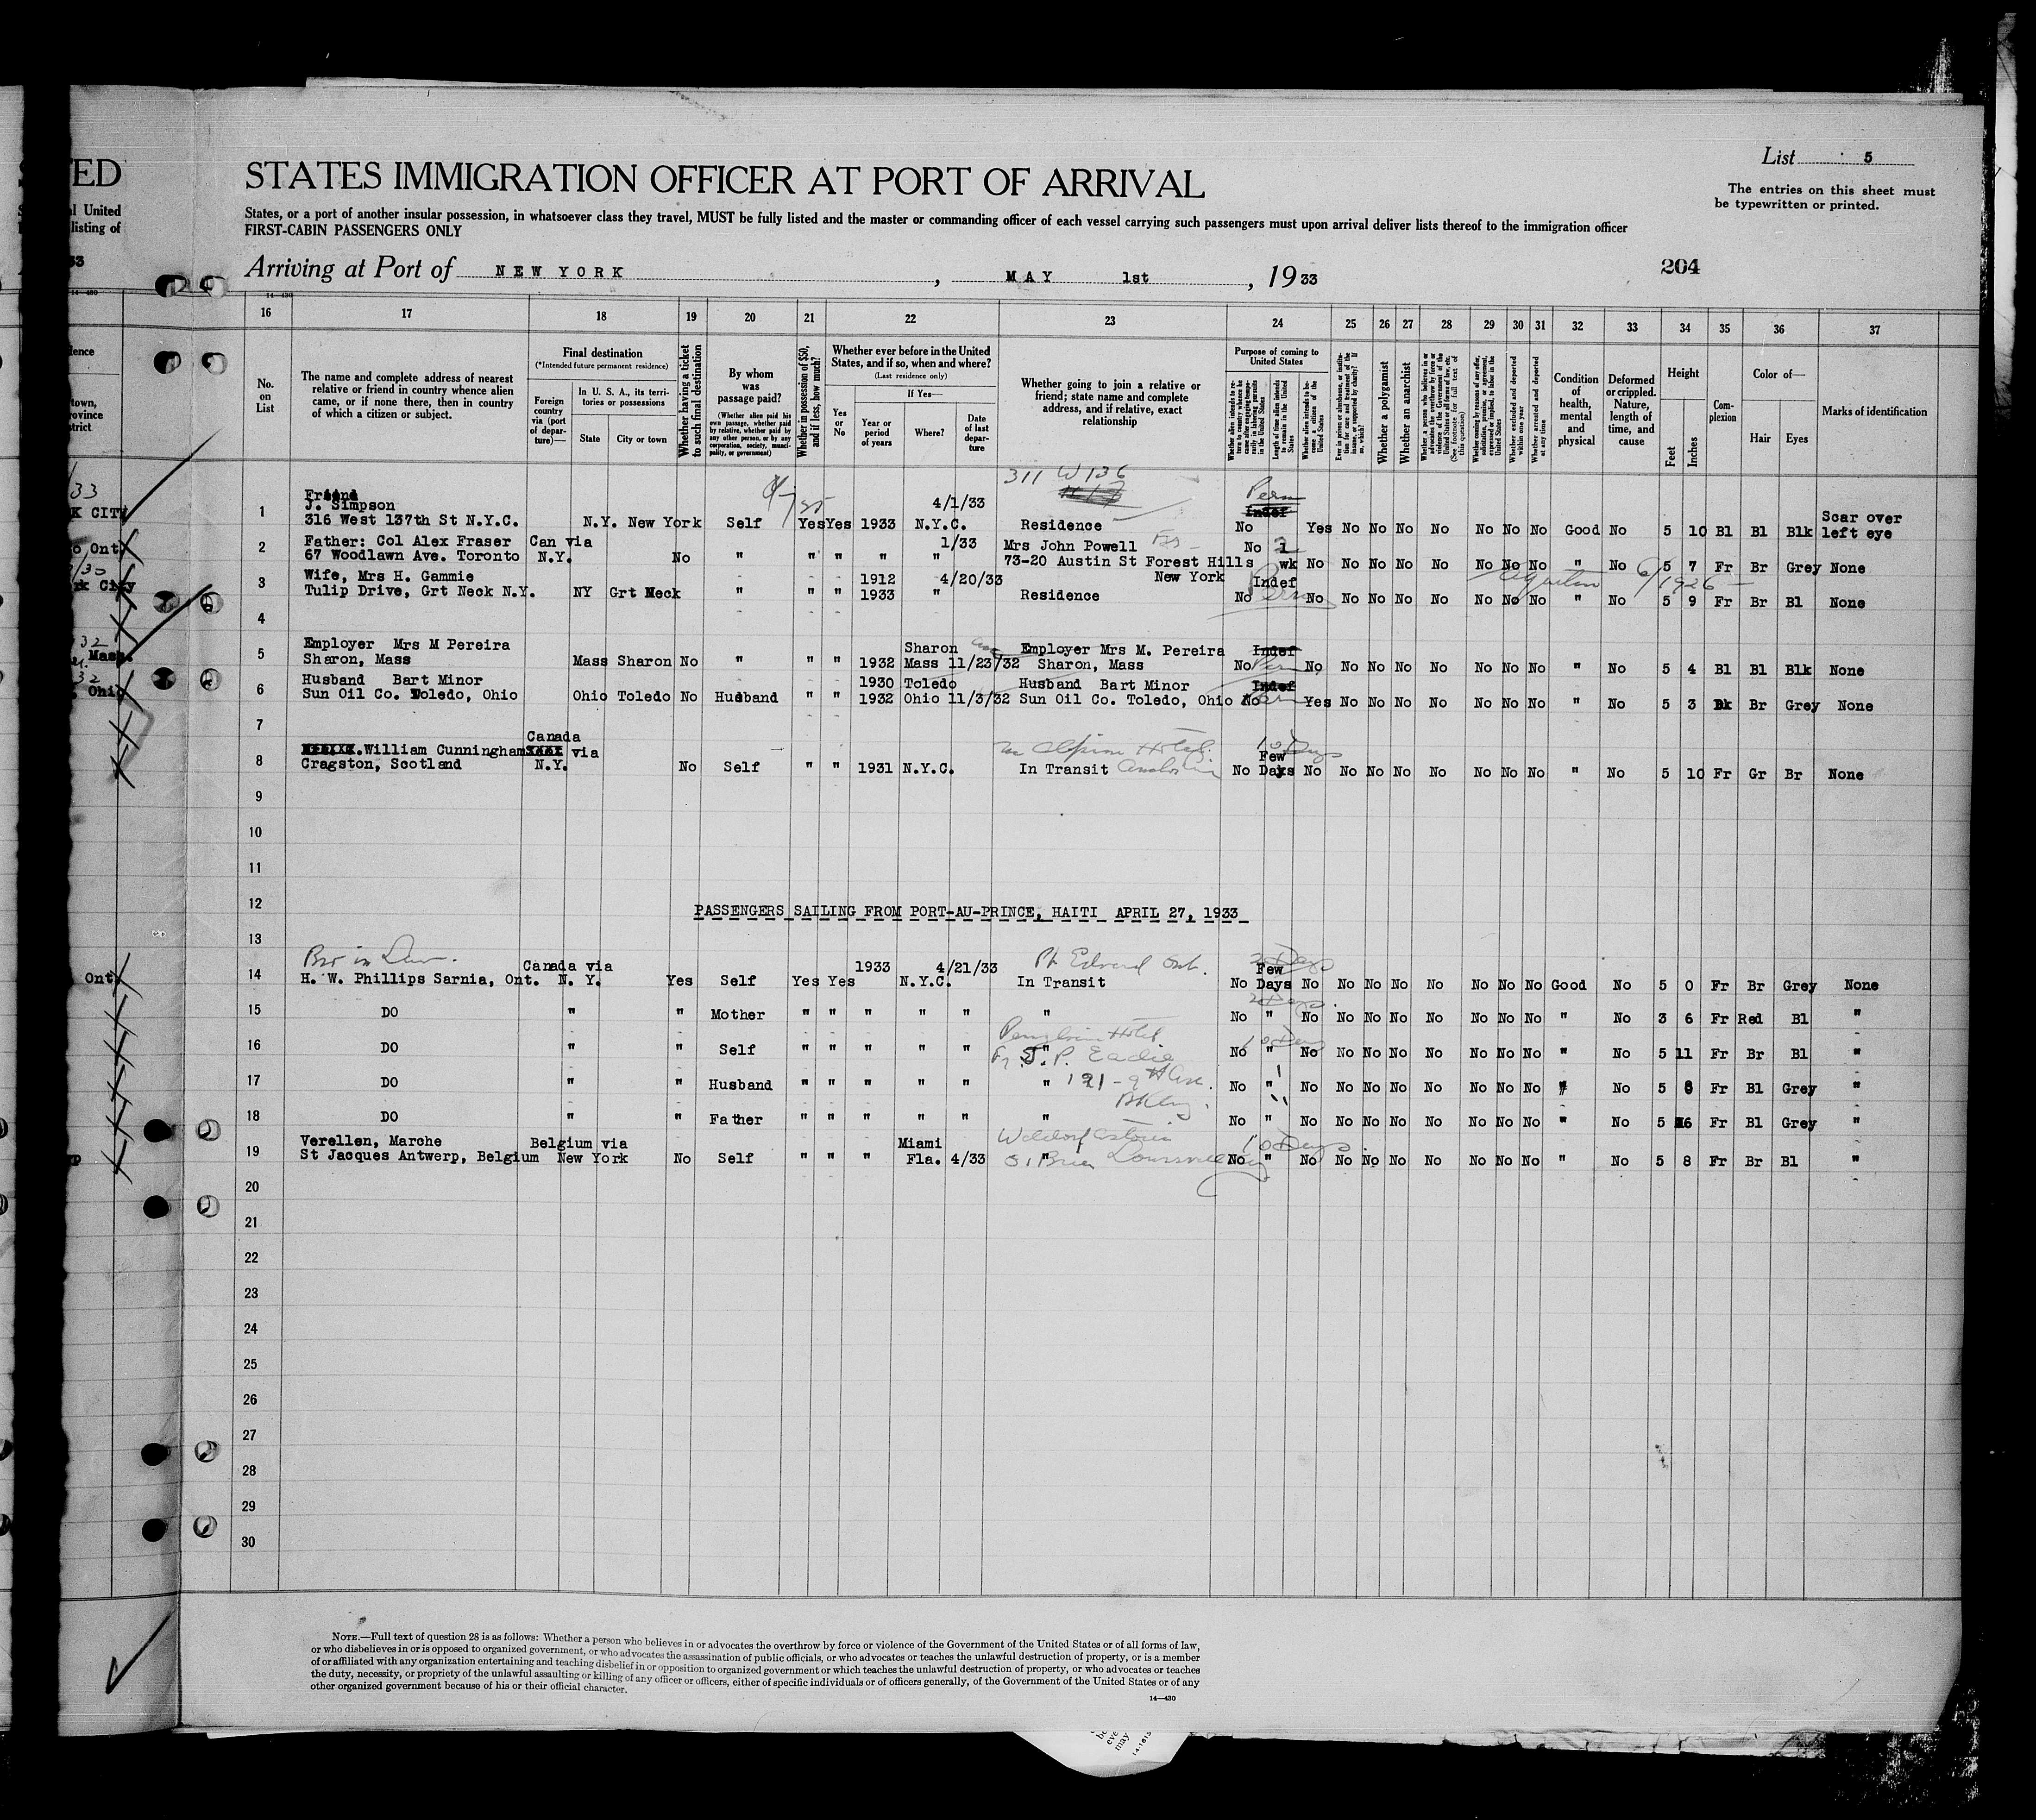 ED
STATES IMMIGRATION OFFICER AT PORT OF ARRIVAL
List 5
The entries on this sheet must
be typewritten or printed.
l United
listing of
States, or a port of another insular possession, in whatsoever class they travel, MUST be fully listed and the master or commanding officer of each vessel carrying such passengers must upon arrival deliver lists thereof to the immigration officer
FIRST-CABIN PASSENGERS ONLY
Arriving at Port of NEW YORK, MAY 1st, 1933
204
14-430
16 17 18 19 20 21 22 23 24 25 26 27 28 29 30 31 32 33 34 35 36 37
No. on List
The name and complete address of nearest relative or friend in country whence alien came, or if none there, then in country of which a citizen or subject.
Final destination
(*Intended future permanent residence)
Foreign country via (port of departure)—
In U. S. A., its territories or possessions
State City or town
Whether having a ticket to such final destination
By whom was passage paid?
(Whether alien paid his own passage, whether paid by relative, whether paid by any other person, or by any corporation, society, municipality, or government)
Whether in possession of $50, and if less, how much?
Whether ever before in the United States, and if so, when and where?
(Last residence only)
If Yes—
Yes or No
Year or period of years
Where?
Date of last departure
Whether going to join a relative or friend; state name and complete address, and if relative, exact relationship
Purpose of coming to United States
Whether alien intends to return to country whence he came after engaging temporarily in laboring pursuits in the United States
Length of time alien intends to remain in the United States
Whether alien intends to become a citizen of the United States
Ever in prison or almshouse, or institution for care and treatment of the insane, or supported by charity? If so, which?
Whether a polygamist
Whether an anarchist
Whether a person who believes in or advocates the overthrow by force or violence of the Government of the United States or all forms of law, etc. (See footnote for full text of this question)
Whether coming by reasons of any offer, solicitation, promise, or agreement, expressed or implied, to labor in the United States
Whether excluded and deported within one year
Whether arrested and deported at any time
Condition of health, mental and physical
Deformed or crippled. Nature, length of time, and cause
Height
Feet Inches
Complexion
Color of—
Hair Eyes
Marks of identification
311 W 136
Perm
1 Friend
J. Simpson 4/1/33 Indef Scar over
316 West 137th St N.Y.C. N.Y. New York Self Yes Yes 1933 N.Y.C. Residence No Yes No No No No No No No Good No 5 10 Bl Bl Blk left eye
2 Father: Col Alex Fraser Can via 1/33 Mrs John Powell No 1
67 Woodlawn Ave. Toronto N.Y. No " " " " " 73-20 Austin St Forest Hills wk No No No No No No No No " No 5 7 Fr Br Grey None
3 Wife, Mrs H. Gammie 1912 4/20/33 New York Indef
Tulip Drive, Grt Neck N.Y. NY Grt Neck " " " 1933 " Residence No No No No No No No No No " No 5 9 Fr Br Bl None
6/1926
4
5 Employer Mrs M Pereira Sharon Employer Mrs M. Pereira Indef
Sharon, Mass Mass Sharon No " " " 1932 Mass 11/23/32 Sharon, Mass No No No No No No No No No " No 5 4 Bl Bl Blk None
6 Husband Bart Minor 1930 Toledo Husband Bart Minor Indef
Sun Oil Co. Toledo, Ohio Ohio Toledo No Husband " " 1932 Ohio 11/3/32 Sun Oil Co. Toledo, Ohio No Yes No No No No No No No " No 5 3 Br Grey None
7
Canada 10 Days
8 William Cunningham via Few
Cragston, Scotland N.Y. No Self " " 1931 N.Y.C. In Transit No Days No No No No No No No No " No 5 10 Fr Gr Br None
9
10
11
12
PASSENGERS SAILING FROM PORT-AU-PRINCE, HAITI APRIL 27, 1933
13
Bro in Law.
14 Canada via 1933 4/21/33 Few
H. W. Phillips Sarnia, Ont. N. Y. Yes Self Yes Yes N.Y.C. In Transit No Days No No No No No No No No Good No 5 0 Fr Br Grey None
15 DO " " Mother " " " " " " No " No No No No No No No No " No 3 6 Fr Red Bl "
16 DO " " Self " " " " " " No " No No No No No No No No " No 5 11 Fr Br Bl "
J. P. Eadie
17 DO " " Husband " " " " " " No " No No No No No No No No " No 5 8 Fr Bl Grey "
191-9th Ave.
Bklyn.
18 DO " " Father " " " " " " No " No No No No No No No No " No 5 6 Fr Bl Grey "
19 Verellen, Marche Belgium via Miami Waldorf Astoria 10 Days
St Jacques Antwerp, Belgium New York No Self " " " Fla. 4/33 " No " No No No No No No No No " No 5 8 Fr Br Bl "
20
21
22
23
24
25
26
27
28
29
30
NOTE.—Full text of question 28 is as follows: Whether a person who believes in or advocates the overthrow by force or violence of the Government of the United States or of all forms of law,
or who disbelieves in or is opposed to organized government, or who advocates the assassination of public officials, or who advocates or teaches the unlawful destruction of property, or is a member
of or affiliated with any organization entertaining and teaching disbelief in or opposition to organized government or which teaches the unlawful destruction of property, or who advocates or teaches
the duty, necessity, or propriety of the unlawful assaulting or killing of any officer or officers, either of specific individuals or of officers generally, of the Government of the United States or of any
other organized government because of his or their official character.
14—430